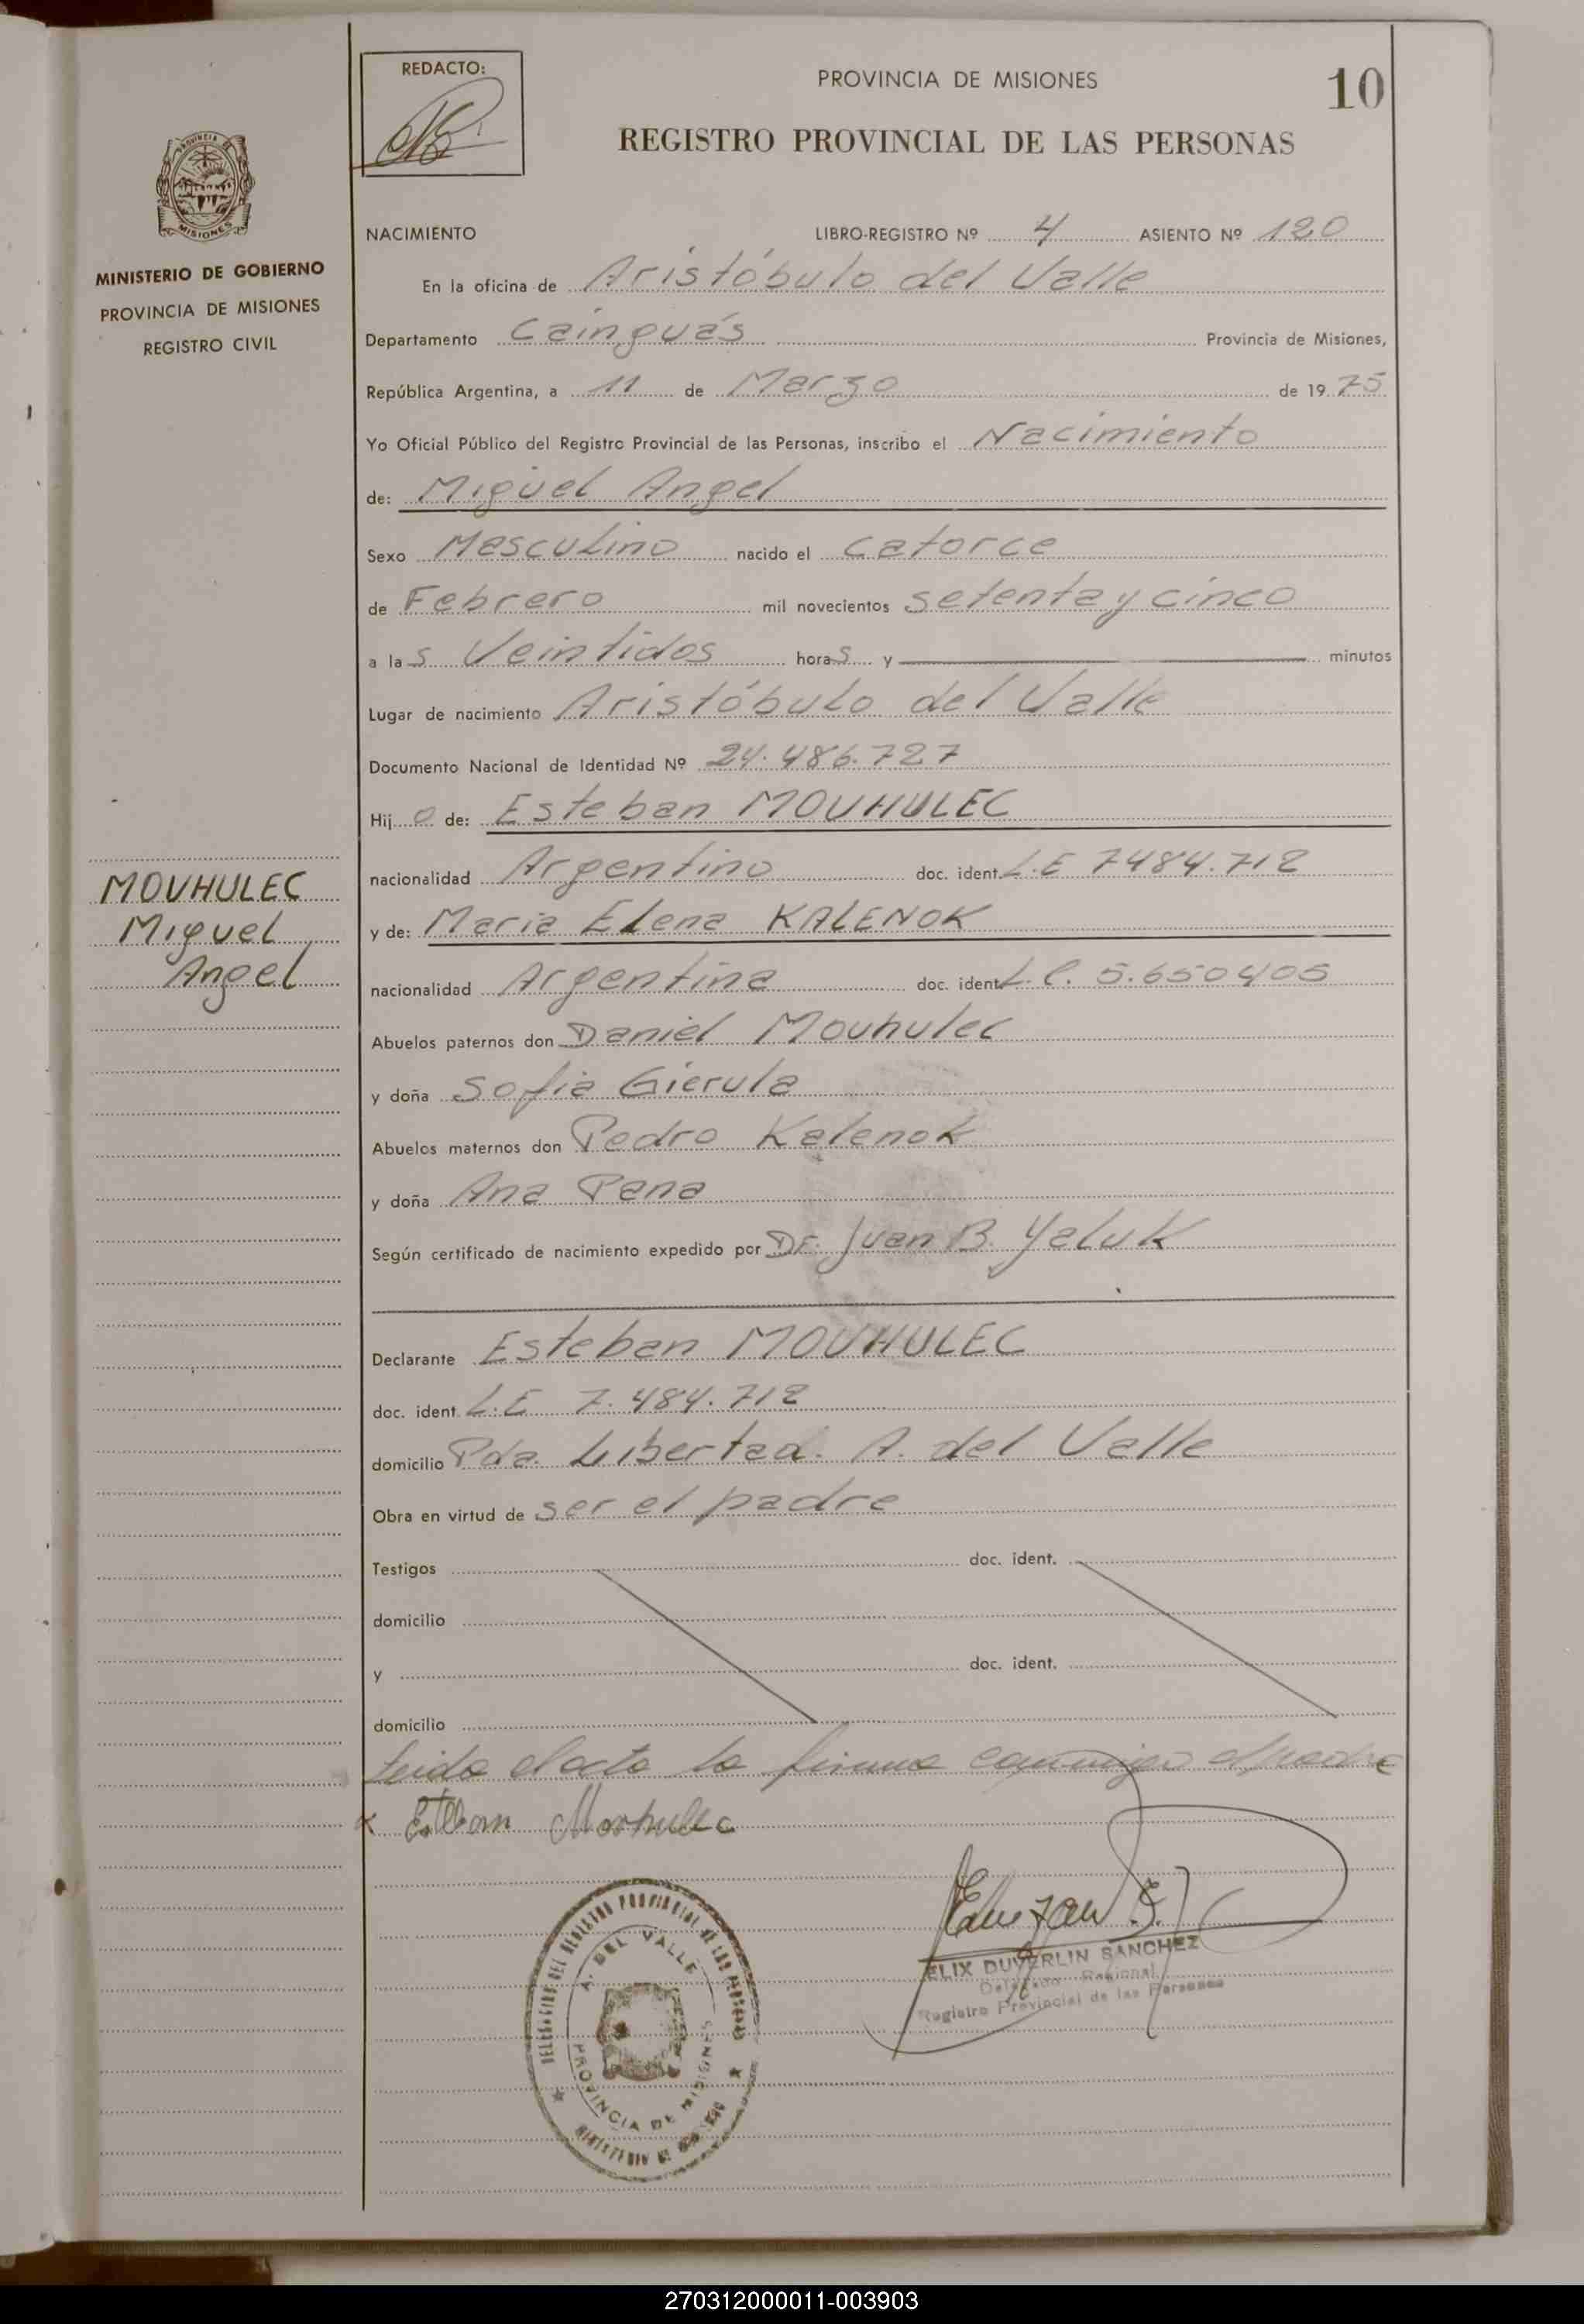 REDACTO:
PROVINCIA DE MISIONES
10
REGISTRO PROVINCIAL DE LAS PERSONAS
PROVINCIA
MISIONES
MINISTERIO DE GOBIERNO
PROVINCIA DE MISIONES
REGISTRO CIVIL
NACIMIENTO LIBRO-REGISTRO Nº 4 ASIENTO Nº 120
En la oficina de Aristóbulo del Valle
Departamento Cainguás Provincia de Misiones,
República Argentina, a 11 de Marzo de 1975
Yo Oficial Público del Registro Provincial de las Personas, inscribo el Nacimiento
de: Miguel Angel
Sexo Masculino nacido el catorce
de Febrero mil novecientos setenta y cinco
a las Veintidos horas y minutos
Lugar de nacimiento Aristóbulo del Valle
Documento Nacional de Identidad Nº 24.486.727
Hijo de: Esteban MOUHULEC
nacionalidad Argentino doc. ident. L.E 7484.712
MOUHULEC
Miguel
Angel
y de: Maria Elena KALENOK
nacionalidad Argentina doc. ident. L.C. 5.650405
Abuelos paternos don Daniel Mouhulec
y doña Sofia Gierula
Abuelos maternos don Pedro Kalenok
y doña Ana Pana
Según certificado de nacimiento expedido por Dr. Juan B. Yaluk
Declarante Esteban MOUHULEC
doc. ident. L.E 7.484.712
domicilio Pda. Libertad. A. del Valle
Obra en virtud de ser el padre
Testigos doc. ident.
domicilio
y doc. ident.
domicilio
Leida el acta la firma conmigo el padre
x Esteban Mouhulec
DELEGACION DEL REGISTRO PROVINCIAL DE LAS PERSONAS
A. DEL VALLE
PROVINCIA DE MISIONES
MINISTERIO DE GOBIERNO
FELIX DUVERLIN SANCHEZ
Delegado Regional
Registro Provincial de las Personas
270312000011-003903